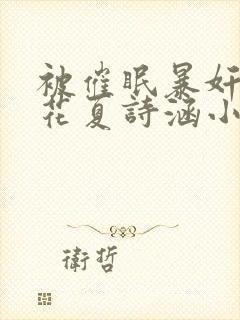 被催眠暴奸
花夏詩涵小
衛哲